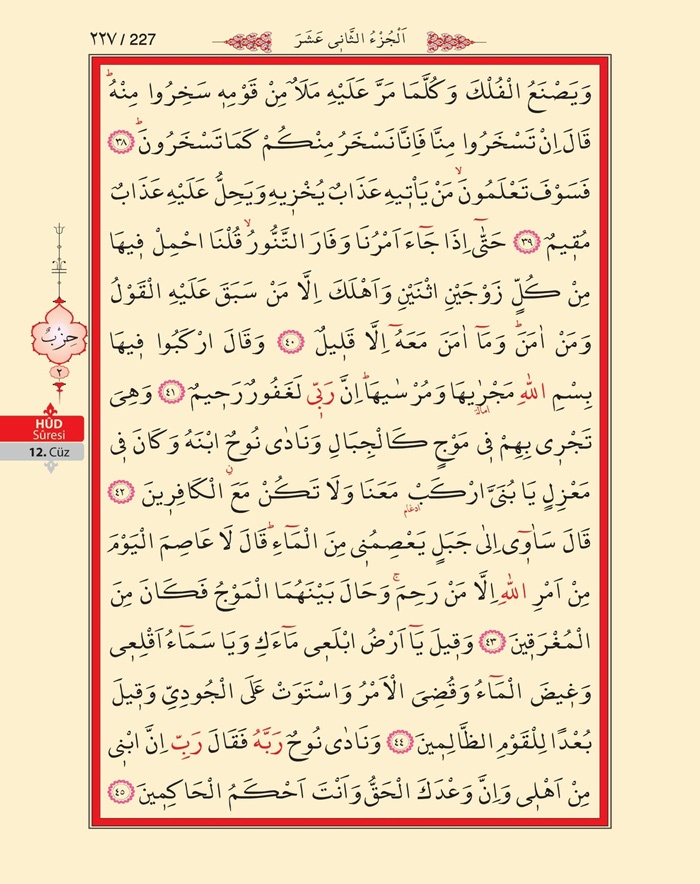 ٢٢٧ / 227
اَلْجُزْءُ الثَّانٖي عَشَرَ
وَيَصْنَعُ الْفُلْكَ وَكُلَّمَا مَرَّ عَلَيْهِ مَلَأٌ مِنْ قَوْمِهٖ سَخِرُوا مِنْهُؕ
قَالَ اِنْ تَسْخَرُوا مِنَّا فَاِنَّا نَسْخَرُ مِنْكُمْ كَمَا تَسْخَرُونَؕ ﴿٣٨﴾
فَسَوْفَ تَعْلَمُونَۙ مَنْ يَأْتٖيهِ عَذَابٌ يُخْزٖيهِ وَيَحِلُّ عَلَيْهِ عَذَابٌ
مُقٖيمٌ ﴿٣٩﴾ حَتّٰٓى اِذَا جَٓاءَ اَمْرُنَا وَفَارَ التَّنُّورُۙ قُلْنَا احْمِلْ فٖيهَا
مِنْ كُلٍّ زَوْجَيْنِ اثْنَيْنِ وَاَهْلَكَ اِلَّا مَنْ سَبَقَ عَلَيْهِ الْقَوْلُ
وَمَنْ اٰمَنَؕ وَمَٓا اٰمَنَ مَعَهُٓ اِلَّا قَلٖيلٌ ﴿٤٠﴾ وَقَالَ ارْكَبُوا فٖيهَا
بِسْمِ اللّٰهِ مَجْرٰۭىهَا وَمُرْسٰيهَاؕ اِنَّ رَبّٖي لَغَفُورٌ رَحٖيمٌ ﴿٤١﴾ وَهِىَ
اماله
تَجْرٖي بِهِمْ فٖي مَوْجٍ كَالْجِبَالِ وَنَادٰى نُوحٌۨ ابْنَهُ وَكَانَ فٖي
مَعْزِلٍ يَا بُنَيَّ ارْكَبْ مَعَنَا وَلَا تَكُنْ مَعَ الْكَافِرٖينَ ﴿٤٢﴾
ادغام
قَالَ سَاٰوٖٓي اِلٰى جَبَلٍ يَعْصِمُنٖي مِنَ الْمَٓاءِؕ قَالَ لَا عَاصِمَ الْيَوْمَ
مِنْ اَمْرِ اللّٰهِ اِلَّا مَنْ رَحِمَۚ وَحَالَ بَيْنَهُمَا الْمَوْجُ فَكَانَ مِنَ
الْمُغْرَقٖينَ ﴿٤٣﴾ وَقٖيلَ يَٓا اَرْضُ ابْلَعٖي مَٓاءَكِ وَيَا سَمَٓاءُ اَقْلِعٖي
وَغٖيضَ الْمَٓاءُ وَقُضِيَ الْاَمْرُ وَاسْتَوَتْ عَلَى الْجُودِيِّ وَقٖيلَ
بُعْدًا لِلْقَوْمِ الظَّالِمٖينَ ﴿٤٤﴾ وَنَادٰى نُوحٌ رَبَّهُ فَقَالَ رَبِّ اِنَّ ابْنٖي
مِنْ اَهْلٖي وَاِنَّ وَعْدَكَ الْحَقُّ وَاَنْتَ اَحْكَمُ الْحَاكِمٖينَ ﴿٤٥﴾
حِزْبٌ
٢
HÛD
Sûresi
12. Cüz